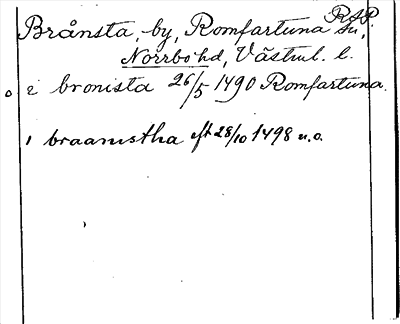 Brånsta, by, Romfartuna sn,
Norrbo hd, Västml. l.
i bronista 26/5 1490 Romfartuna.
i braamstha eft 28/10 1498 u.o.